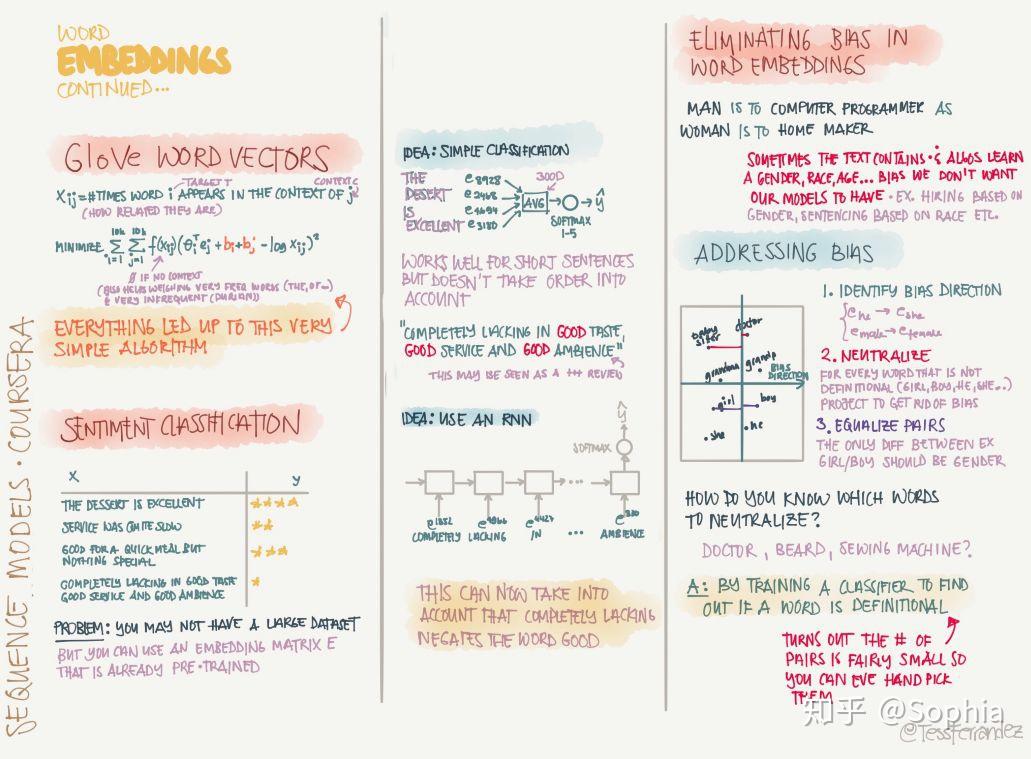 WORD
EMBEDDINGS
CONTINUED...
GloVe WORD VECTORS
TARGET T
CONTEXT C
Xij = # TIMES WORD i APPEARS IN THE CONTEXT OF j
(HOW RELATED THEY ARE)
MINIMIZE Σ_{i=1}^{10k} Σ_{j=1}^{10k} f(Xij)(θiᵀej + bi + bj' - log Xij)²
IF NO CONTEXT
(ALSO HELPS WEIGHING VERY FREQ WORDS (THE, OF...)
& VERY INFREQUENT (DURIAN))
EVERYTHING LED UP TO THIS VERY
SIMPLE ALGORITHM
SENTIMENT CLASSIFICATION
X Y
THE DESSERT IS EXCELLENT ★★★★
SERVICE WAS QUITE SLOW ★★
GOOD FOR A QUICK MEAL BUT
NOTHING SPECIAL ★★★
COMPLETELY LACKING IN GOOD TASTE
GOOD SERVICE AND GOOD AMBIENCE ★
PROBLEM: YOU MAY NOT HAVE A LARGE DATASET
BUT YOU CAN USE AN EMBEDDING MATRIX E
THAT IS ALREADY PRE-TRAINED
SEQUENCE MODELS · COURSERA
IDEA: SIMPLE CLASSIFICATION
THE e8928
DESERT e2468
IS e4694
EXCELLENT e3180
300D
AVG
ŷ
SOFTMAX
1-5
WORKS WELL FOR SHORT SENTENCES
BUT DOESN'T TAKE ORDER INTO
ACCOUNT
"COMPLETELY LACKING IN GOOD TASTE,
GOOD SERVICE AND GOOD AMBIENCE",
THIS MAY BE SEEN AS A +++ REVIEW
IDEA: USE AN RNN
ŷ
SOFTMAX
...
e1852 e4966 e4427 e330
COMPLETELY LACKING IN ... AMBIENCE
THIS CAN NOW TAKE INTO
ACCOUNT THAT COMPLETELY LACKING
NEGATES THE WORD GOOD
ELIMINATING BIAS IN
WORD EMBEDDINGS
MAN IS TO COMPUTER PROGRAMMER AS
WOMAN IS TO HOME MAKER
SOMETIMES THE TEXT CONTAINS & ALGOS LEARN
A GENDER, RACE, AGE... BIAS WE DON'T WANT
OUR MODELS TO HAVE · EX. HIRING BASED ON
GENDER, SENTENCING BASED ON RACE ETC.
ADDRESSING BIAS
baby
sitter
doctor
grandma
grandp
BIAS
DIRECTION
girl
boy
she
he
1. IDENTIFY BIAS DIRECTION
{ehe → eshe
emale → efemale
2. NEUTRALIZE
FOR EVERY WORD THAT IS NOT
DEFINITIONAL (GIRL, BOY, HE, SHE..)
PROJECT TO GET RID OF BIAS
3. EQUALIZE PAIRS
THE ONLY DIFF BETWEEN EX
GIRL/BOY SHOULD BE GENDER
HOW DO YOU KNOW WHICH WORDS
TO NEUTRALIZE?
DOCTOR, BEARD, SEWING MACHINE?
A: BY TRAINING A CLASSIFIER TO FIND
OUT IF A WORD IS DEFINITIONAL
TURNS OUT THE # OF
PAIRS IS FAIRLY SMALL SO
YOU CAN EVE HAND PICK
THEM
知乎 @Sophia
@TessFerrandez